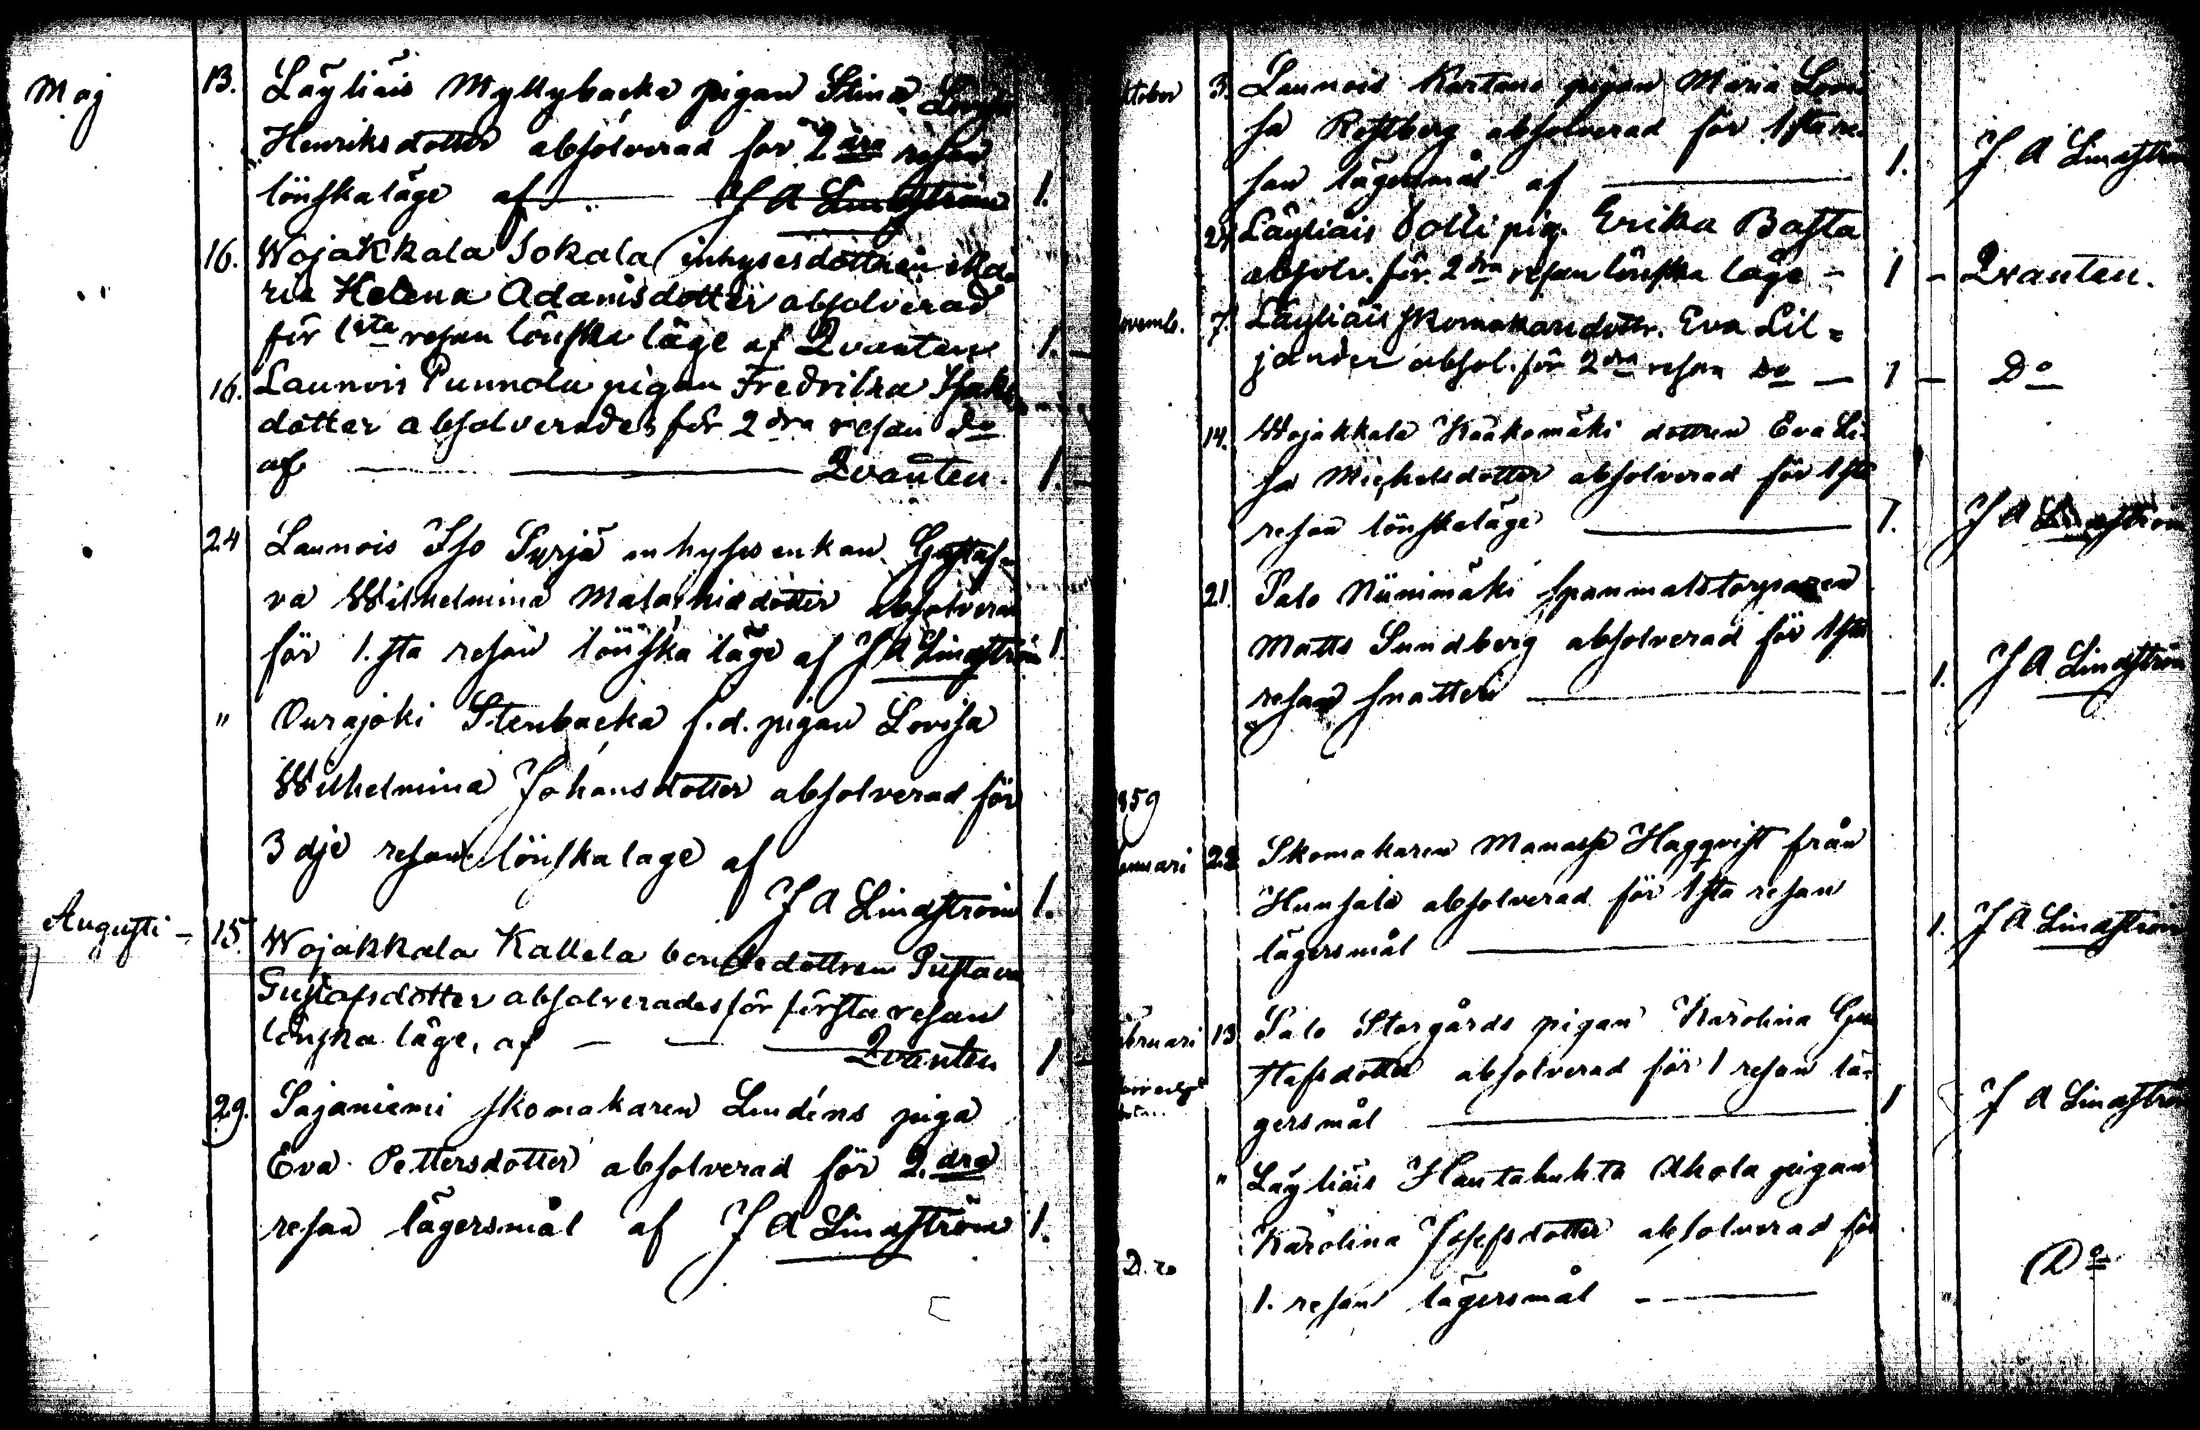 Maj 13. Läyliäis Myllybacka pigan Stina
Henriksdotter absolverad för 2dra resan
lönskaläge af J A Lindström 1.
16. Wojakkala Sokala inhysesdottren Ma-
ria Helena Adamsdotter absolverad
för 1sta resan lönska läge af Qvanten 1.
16. Launois Punnola pigan Fredrika Isaks
dotter absolverades för 2dra resan do
af Qvanten. 1.
24 Launois Iso Syrjä inhyses enkan Gustaf-
va Wilhelmina Malachiadotter absolverad
för 1.sta resan lönska läge af J A Lindström 1.
" Ourajoki Stenbacka f.d. pigan Lovisa
Wilhelmina Johansdotter absolverad för
3dje resan lönskaläge af
J A Lindström 1.
Augusti - 15. Wojakkala Kallela bondedottren Gustava
Gustafsdotter absolverades för första resan
lönska läge, af Qvanten 1
29. Sajaniemi skomakaren Lindéns piga
Eva Pettersdotter absolverad för 2.dra
resan lägersmål af J A Lindström 1.
ktober 3. Launois Kartano pigan Maria Lovi
sa Rostberg absolverad för 1sta re-
san lägersmål af 1. J A Lindström
Läyliäis Tolli pig. Erika Basta
absolv. för 2dra resan lönska läge - 1 - Qvanten.
ovemb. 7. Läyliäis skomakaredottr. Eva Lil=
jander absol. för 2dra resan Do 1 - Do
14. Wojakkala Kaakomäki dottren Eva Li-
sa Michelsdotter absolverad för 1sta
resan lönskaläge 1. J A Lindström
21. Salo Niinimäki spanmalstorparen
Matts Sundberg absolverad för 1sta
resan snatteri 1. J A Lindström
859
anuari 22 Skomakaren Manasse Hagqvist från
Hunsala absolverad för 1sta resan
lägersmål 1. J A Lindström
ebruari 13 Salo Storgårds pigan Karolina Gu
stafsdotter absolverad för 1 resan lä-
gersmål 1 J A Lindström
" Läyliäis Hautahuhta Ahola pigan
Karolina Josefsdotter absolverad för
D.ro 1. resan lägersmål " Do